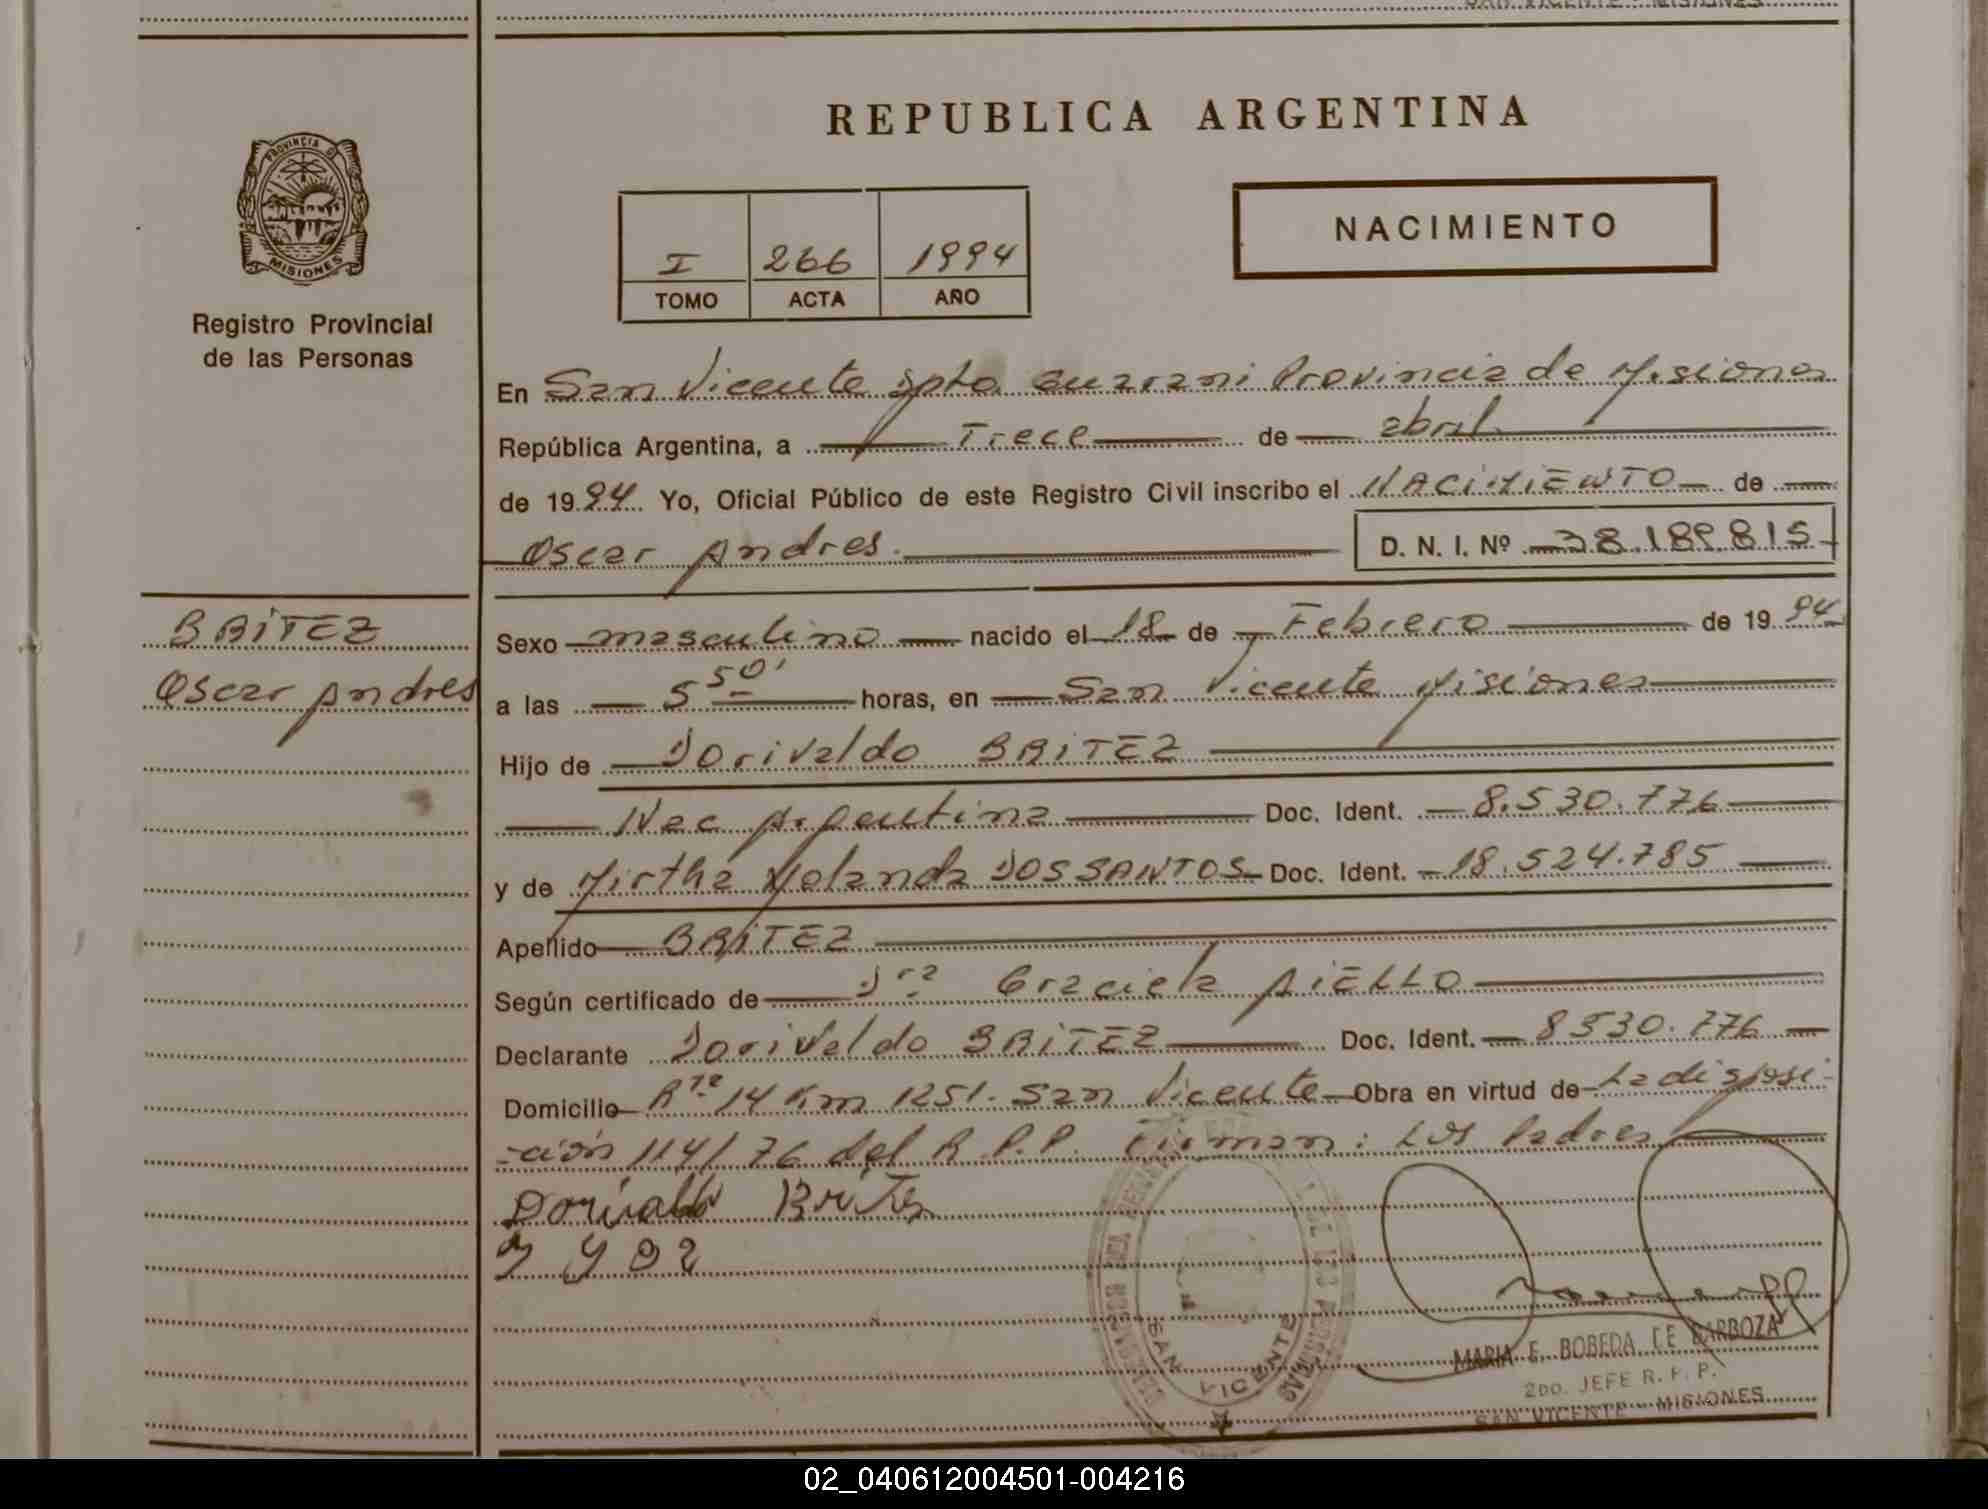 SAN VICENTE - MISIONES
REPUBLICA ARGENTINA
PROVINCIA D
MISIONES
Registro Provincial
de las Personas
I 266 1994
TOMO ACTA AÑO
NACIMIENTO
En San Vicente Dpto Guarani Provincia de Misiones
República Argentina, a Trece de abril
de 1994 Yo, Oficial Público de este Registro Civil inscribo el NACIMIENTO de
Oscar Andres. D. N. I. Nº 38.189.815
BRITEZ
Oscar Andres
Sexo masculino nacido el 18 de Febrero de 1994
a las 5 50' horas, en San Vicente Misiones
Hijo de Dorivaldo BRITEZ
Nac Argentina Doc. Ident. 8.530.776
y de Mirtha Yolanda DOS SANTOS Doc. Ident. 18.524.785
Apellido BRITEZ
Según certificado de Dra Graciela AIELLO
Declarante Dorivaldo BRITEZ Doc. Ident. 8530.776
Domicilio Rta 14 Km 1251. San Vicente Obra en virtud de La disposi-
-ción 114/76 del R.P.P. Firman: Los Padres
Dorivaldo Britez
SAN VICENTE
MARIA E. BOBEDA DE BARBOZA
2DO. JEFE R. P. P.
SAN VICENTE - MISIONES
02_040612004501-004216